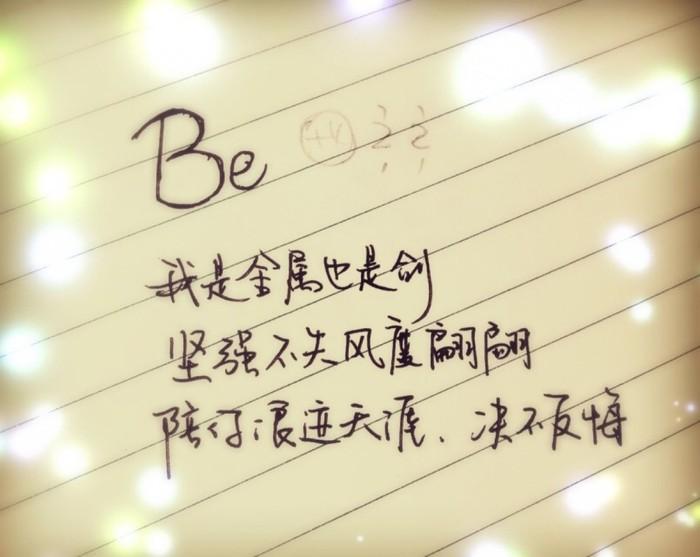 Be +4 2, 2
我是金属也是剑
坚强不失风度翩翩
陪你浪迹天涯、决不反悔